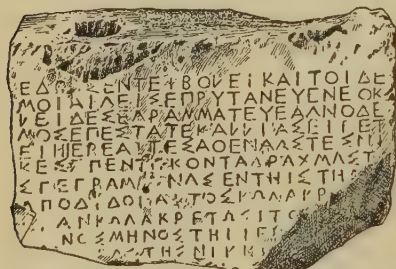 ΕΔΟΧΣΕΝΤΕΙΒΟΛΕΙΚΑΙΤΟΙΔΕ
ΜΟΙΑΙΓΕΙΣΕΠΡΥΤΑΝΕΥΕΝΕΟΚ
ΛΕΙΔΕΣΕΓΡΑΜΜΑΤΕΥΕΑΓΝΟΔΕ
ΜΟΣΕΠΕΣΤΑΤΕΚΑΛΛΙΑΣΕΙΠΕΤ
ΕΙΗΙΕΡΕΑΙΤΕΣΑΘΕΝΑΑΣΤΕΣΝΙ
ΚΕΣΠΕΝΤΕΚΟΝΤΑΔΡΑΧΜΑΣΤ
ΣΓΕΓΡΑΜΜΕΝΑΣΕΝΤΗΙΣΤΗ
ΑΠΟΔΙΔΟΝΑΙΤΟΣΚΩΛΑΚΡ
ΑΝΚΩΛΑΚΡΕΤΩΣΙΤΟ
ΝΟΣΜΗΝΟΣΤΗΙΙΕ
ΤΗΣΝΙΚΗΣ